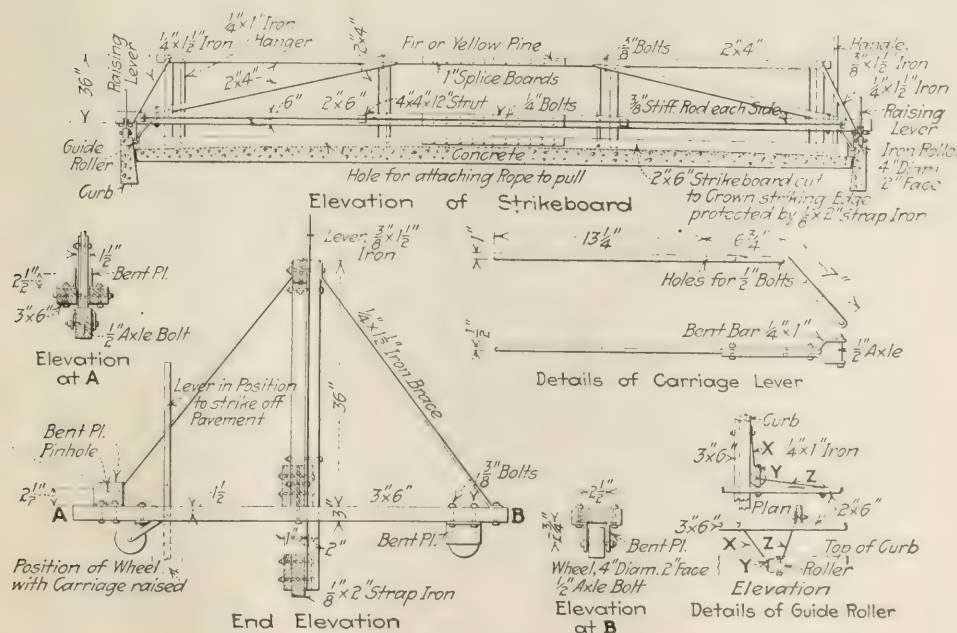 ¼"×1" Iron
Hanger
¼"×1½" Iron
Raising
Lever
36"
2"×4"
2"×4"
Fir or Yellow Pine
⅜" Bolts
2"×4"
Handle,
⅜"×1½" Iron
¼"×1½" Iron
Raising
Lever
1" Splice Boards
Y
6"
2"×6"
4"×4"×12" Strut
¼" Bolts
⅜" Stiff Rod each Side
Guide
Roller
Curb
Concrete
Iron Roller
4" Diam.
2" Face
Hole for attaching Rope to pull
2"×6" Strikeboard cut
to Crown striking Edge
protected by ⅛"×2" strap Iron
Elevation of Strikeboard
1½"
Bent Pl.
2½"
3"×6"
½" Axle Bolt
Elevation
at A
Lever ⅜"×1½"
Iron
¼"×1½" Iron Brace
36"
Lever in Position
to strike off
Pavement
Bent Pl.
Pinhole
2½"
A
1½
3"
3"×6"
⅜" Bolts
B
1"
2"
Bent Pl.
Position of Wheel
with Carriage raised
⅛"×2" Strap Iron
End Elevation
1"
13¼"
6¾"
7"
Holes for ½" Bolts
1½"
Bent Bar ¼"×1"
½" Axle
Details of Carriage Lever
2½"
2¾"
Bent Pl.
Wheel, 4" Diam. 2" Face
½" Axle Bolt
Elevation
at B
Curb
3"×6"
X
¼"×1" Iron
Y
Z
Plan
2"×6"
3"×6"
X
Z
Top of Curb
Y
Roller
Elevation
Details of Guide Roller